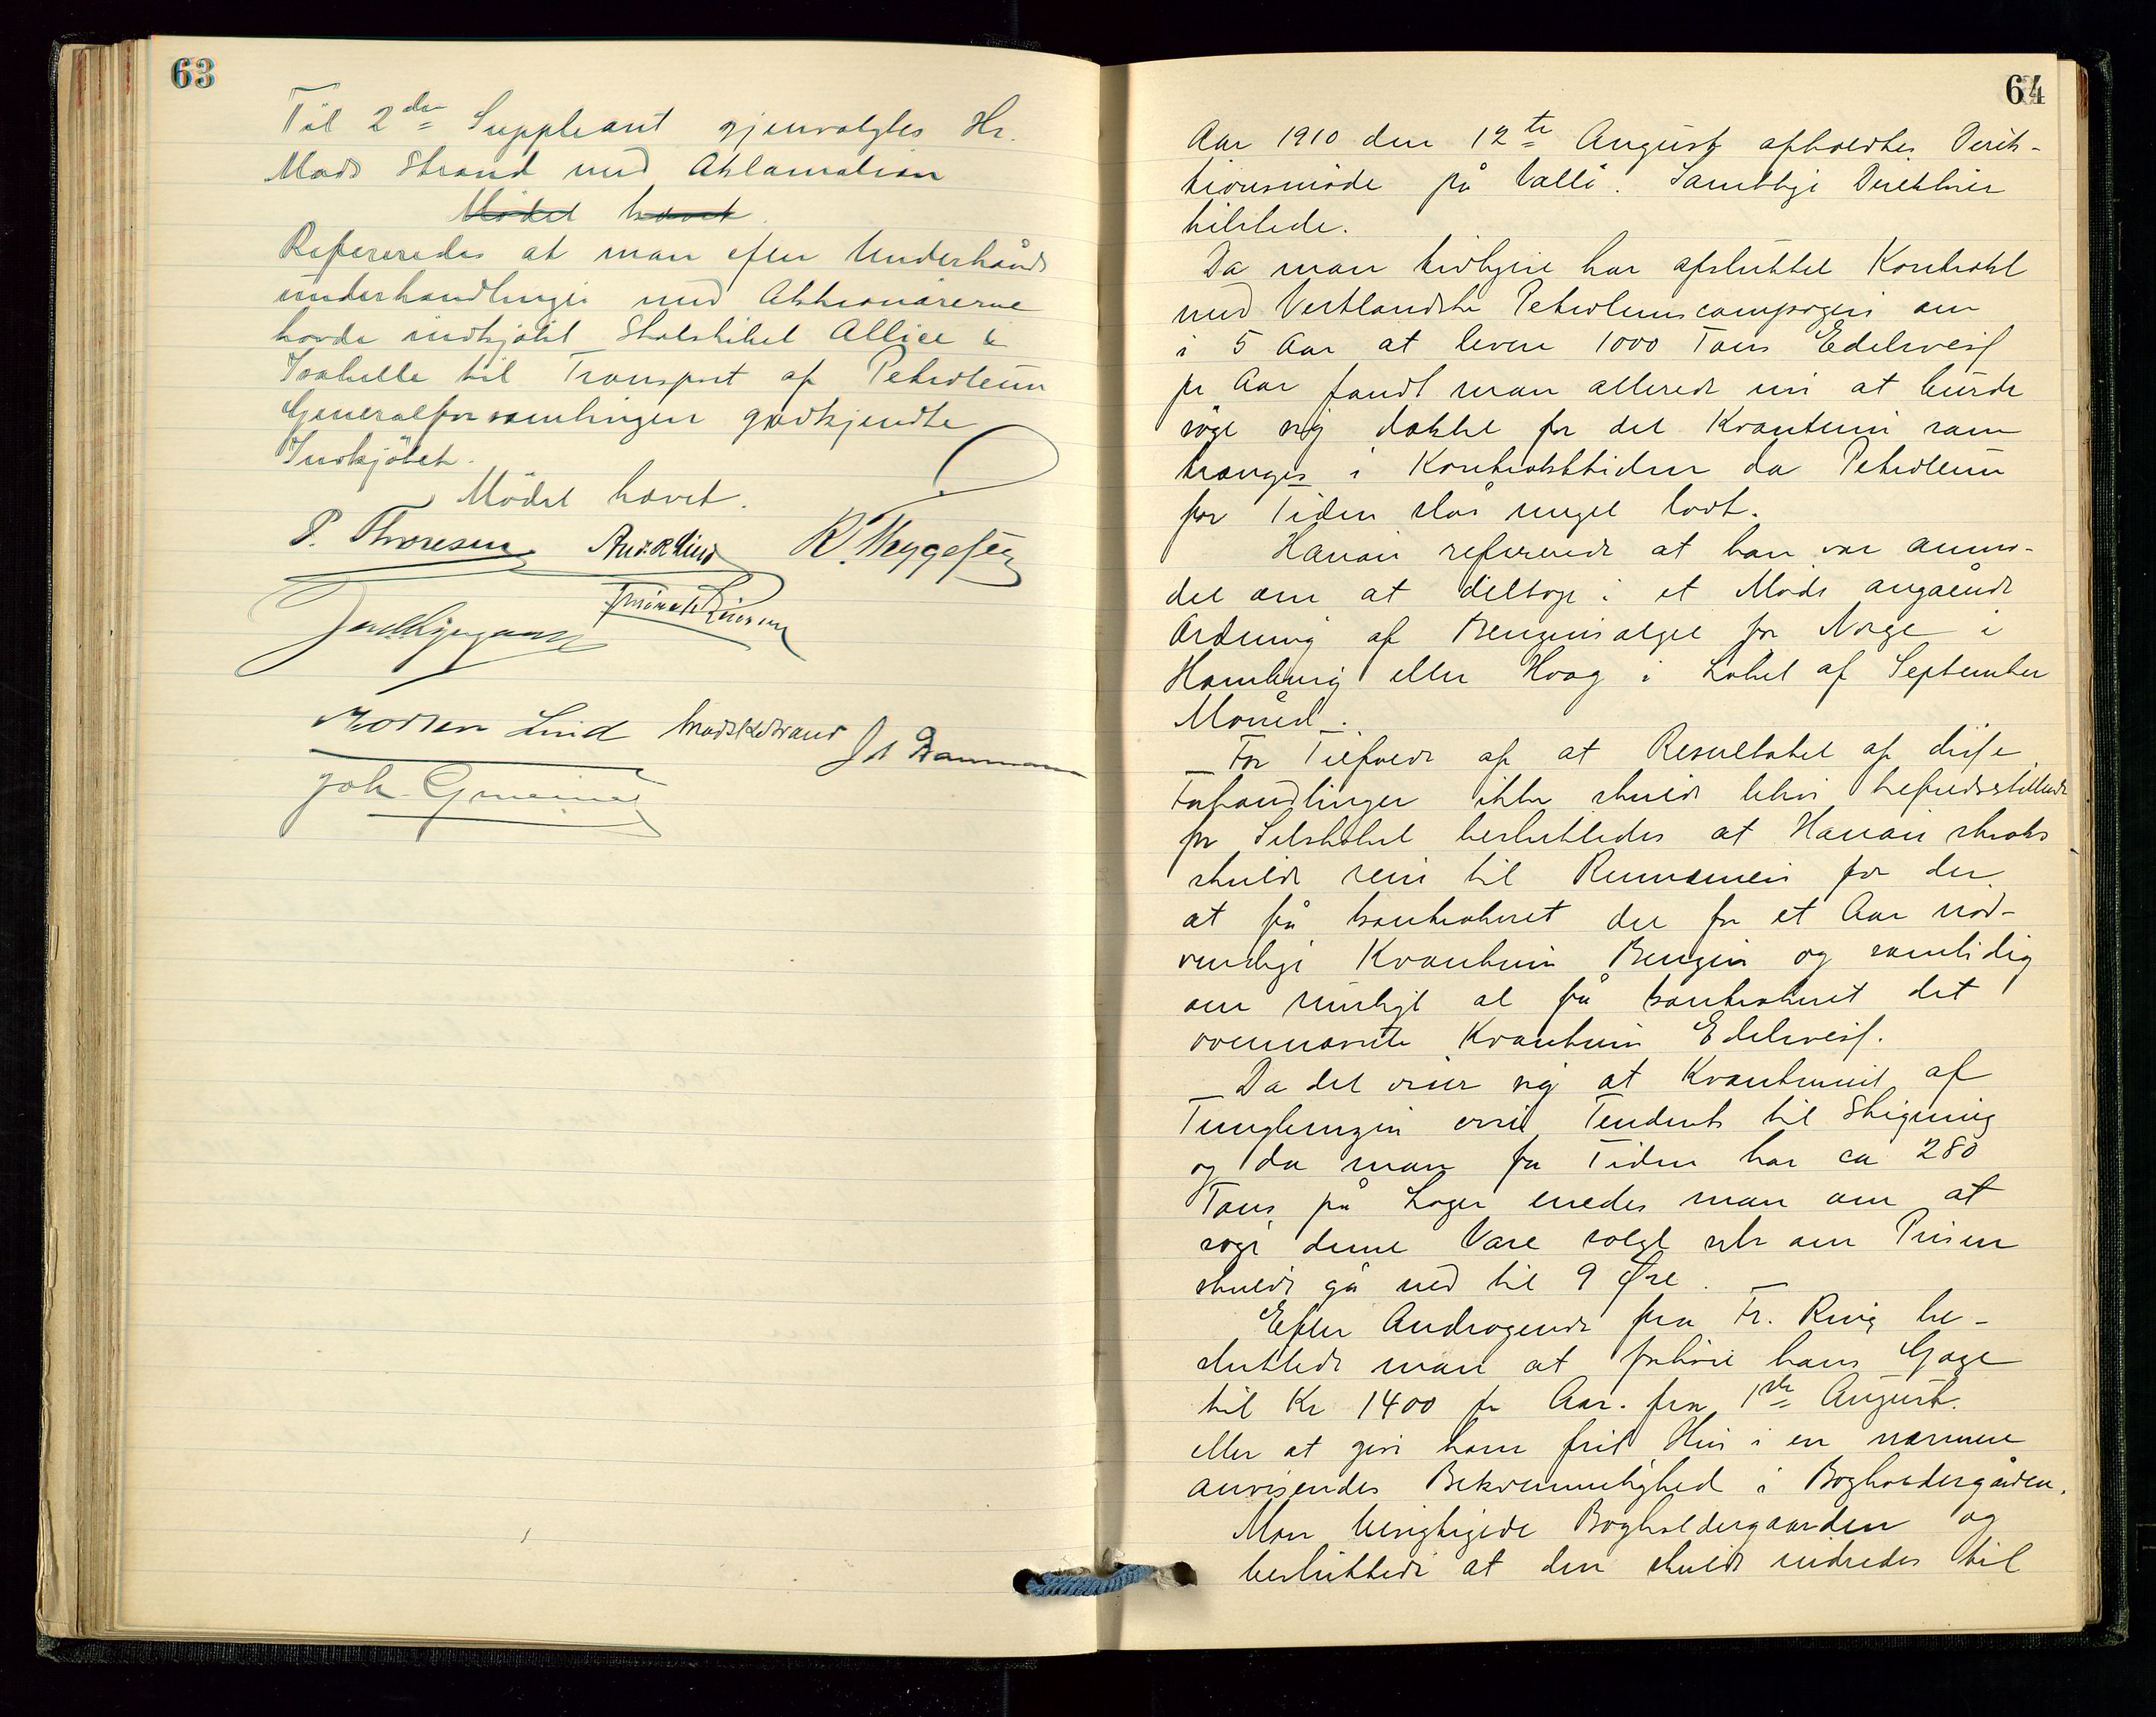 63
Til 2den Suppleant gjenvalgtes Hr.
Mads Strand med Aklamation
Mødet hævet.
Refereredes at man efter Underhånds
underhandlinger med Aktionærerne
havde indkjøbt Skibet Allice &
Isabelle til Transport af Petroleum
Generalforsamlingen godkjendte
Indkjøbet.
Mødet hævet.
P. Thoresen And. R Lind R. Theggesen
Morten Lind Mads K Strand
Joh.
64
Aar 1910 den 12te August afholdtes Direk-
tionsmøde på Vallø. Samtlige Direktører
tilstede.
Da man tidligere har afsluttet Kontrakt
med Vestlandske Petroleumscompagni om
i 5 Aar at levere 1000 Tons Edelweiss
pr Aar fandt man allerede nu at burde
søge sig dækket for det Kvantum som
trænges i Kontrakttiden da Petroleum
for Tiden står meget lavt.
Hanan refererede at han var anmo-
det om at deltage i et Møde angående
Ordning af Benzinsalget for Norge i
Hamburg eller Haag i Løbet af September
Måned.
For Tilfælde af at Resultatet af disse
Forhandlinger ikke skulde blive tilfredsstillende
for Selskabet besluttedes at Hanan straks
skulde reise til Rumænien for der
at få kontraheret det for et Aar nød-
vendige Kvantum Benzin og samtidig
om muligt at få kontraheret det
ovennævnte Kvantum Edelweiss.
Da det viser sig at Kvantumet af
Tungbenzin viser Tendents til Stigning
og da man for Tiden har ca 280
Tons på Lager enedes man om at
søge denne Vare solgt selv om Prisen
skulde gå ned til 9 Øre.
Efter Andragende fra Fr. Ring be-
sluttede man at forhøie hans Gage
til Kr 1400 pr Aar. fra 1ste August.
eller at give ham frit Hus i en nærmere
anvisendes Bekvemmelighed i Bogholdergården.
Man besigtigede Bogholdergaarden og
besluttede at den skulde indredes til